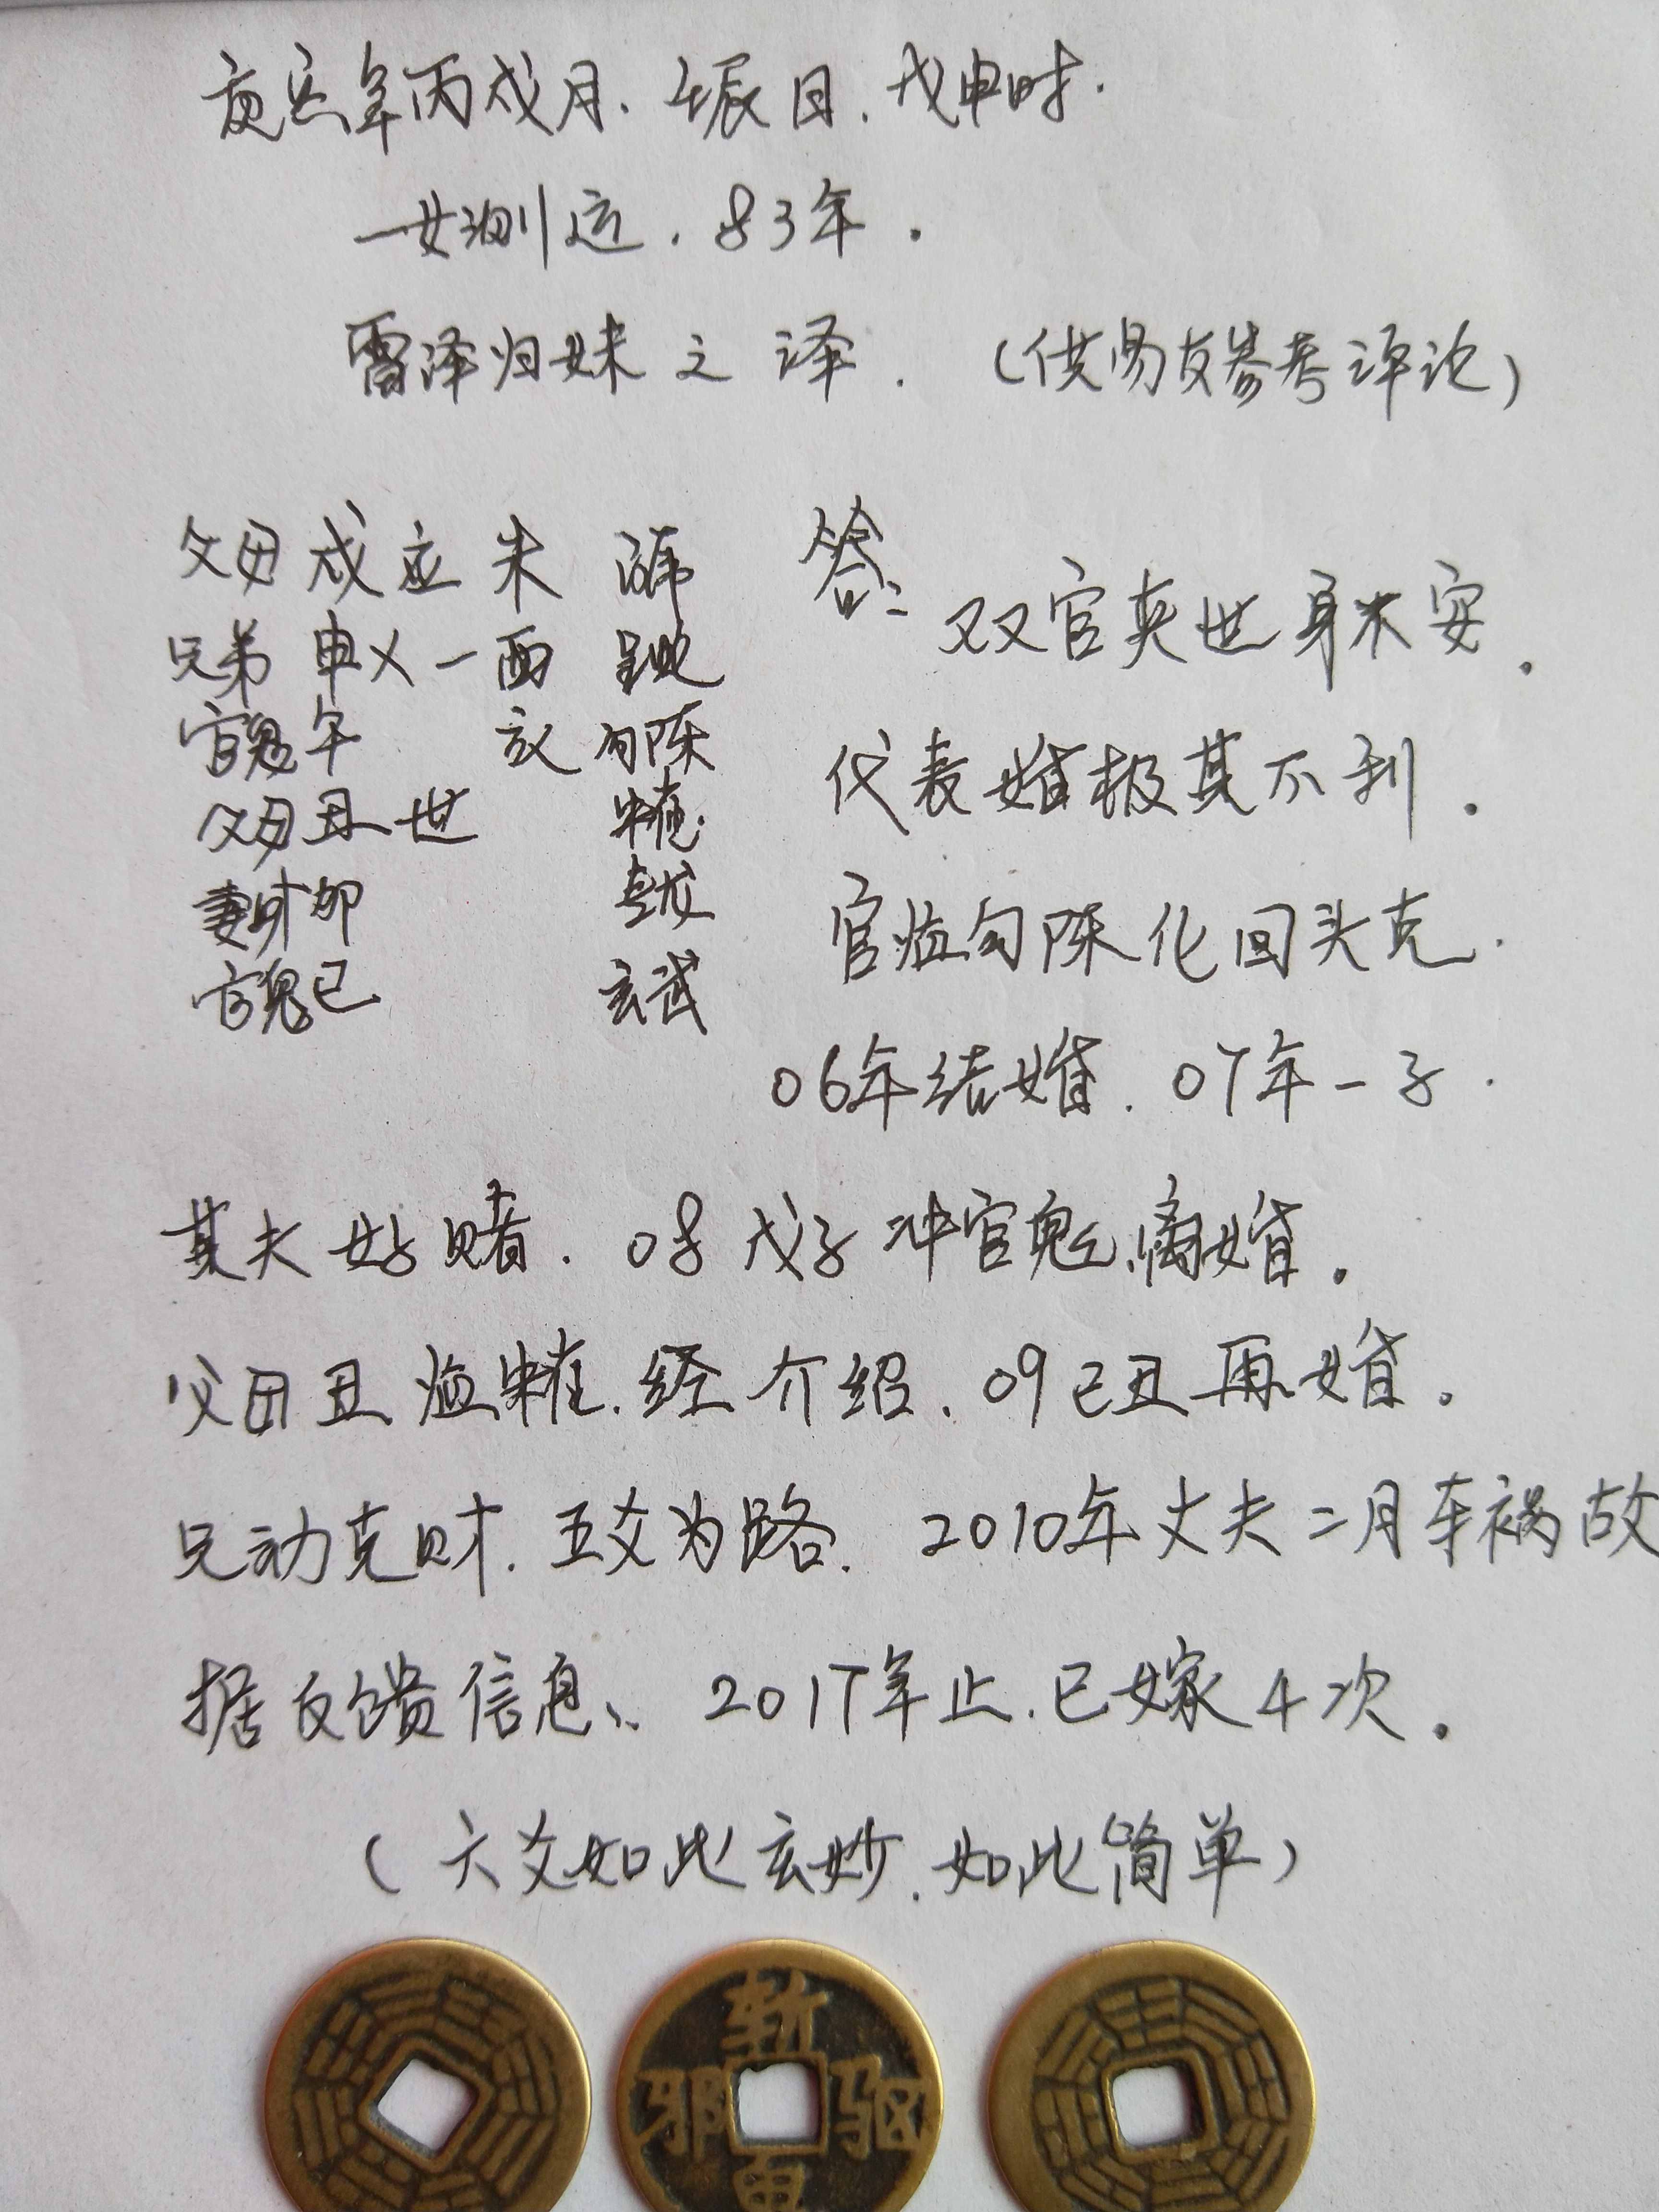 庚寅年丙戌月.壬辰日.戊申时.
一女测运.83年.
雷泽归妹之泽.(供易友参考评论)
父母戌应未
兄弟申乂一酉
官鬼午 亥勾陈
父母丑一世
妻财卯 青龙
官鬼巳 玄武
答:双官夹世身不安.
代表婚极其不利.
官临勾陈化回头克.
06年结婚.07年一子.
其夫好赌.08戊子冲官鬼.离婚.
父母丑临朱雀.经介绍.09己丑再婚.
兄动克财.五爻为路.2010年丈夫二月车祸故
据反馈信息、2017年止.已嫁4次.
(六爻如此玄妙.如此简单)
斩
邪 驱
鬼